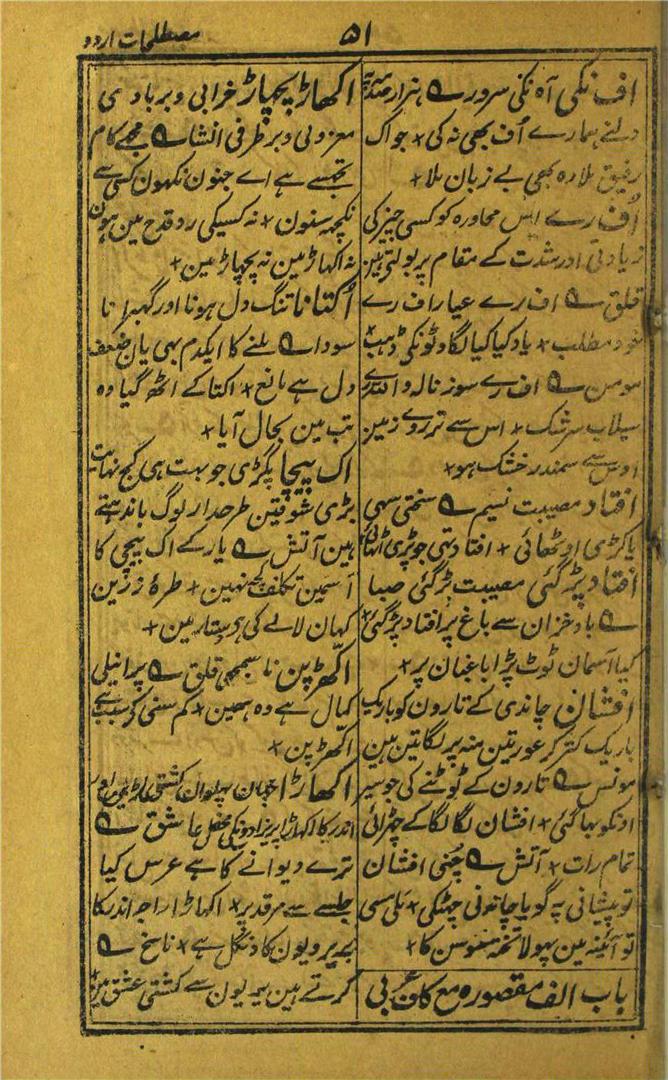 مصطلحات اردو
۵۱
اف نکی آہ نکی سرور ے ہزار صدمے
دلنے ہمارے اُف بھی نہ کی + جو اک
رفیق ملا وہ بھی بے زبان ملا +
اُف رے اس محاورہ کو کسی چیز کی
زیادتی اور شدت کے مقام پر بولتے ہین
قلق ے اف رے عیار اف رے
خود مطلب + یاد کیا کیا لگاوٹونکی ڈہب +
مومن ے اف رے سوز نالہ و اللہ رے
سیلاب سرشک + اس سے تر روے زمین
اوس سے سمندر خشک ہو +
افتاد مصیبت نسیم ے سختی سہی
یا کڑی اوٹھائی + افتاد تہی جو پڑی اٹھائی
افتاد پڑ گئی مصیبت پڑ گئی صبا
ے باد خزان سے باغ پر افتاد پڑ گئی +
کیا آسمان ٹوٹ پڑا باغبان پر +
افشان چاندی کے تارون کو باریک
باریک کتر کر عورتین منہ پر لگاتین ہین
مونس ے تارون کے ٹوٹنے کی جو سیر
اونکو بھا گئی + افشان لگا لگا کے چھڑائی
تمام رات + آتش ے چُنی افشان
تو پیشانی پہ گویا چاندنی چھٹکی + ملی مسی
تو آئینہ مین پھولا تختہ سوسن کا +
باب الف مقصورہ مع کاف عربی
اکھاڑ پچھاڑ خرابی و بربادی
معزولی و برطرفی انشا ے مجھے کام
تجھسے ہے اے جنون نکہون کسی سے
نکچھ سنون + نہ کسیکی رد و قدح مین ہون
نہ اکہاڑ مین نہ پچھاڑ مین +
اُکتانا تنگ دل ہونا اور گھبرانا
سودا ے ہلنے کا ایکدم بہی یان ضعف
دل ہے مانع + اکتا کے اٹھ گیا وہ
تب مین بحال آیا +
اک پیچا پگڑی جو بہت ہی کج نہایت
بڑی شوقین طرحدار لوگ باندہتے
ہین آتش ے یار کے اک پیچی کا
اسمین تکلف کچھ نہین + طرۂ زرین
کہان لالے کی دستار مین +
اکھڑپن ناسمجھی قلق ے پر انیلی
کمال ہے وہ ہمین + کم سنی کے سبب سے ہے
اکھڑپن +
اکھاڑا جہان پہلوان کشتی لڑین اور
اندر کا اکھاڑا پریزادونکی محفل عاشق ے
ترے دیوانے کا ہے عرس کیا
جلسے سے مرقد پر + اکھاڑا راجہ اندر کا
ہے پریون کا دنگل ہے + ناسخ ے
کرتے ہین پریون سے کشتی عشق مین +